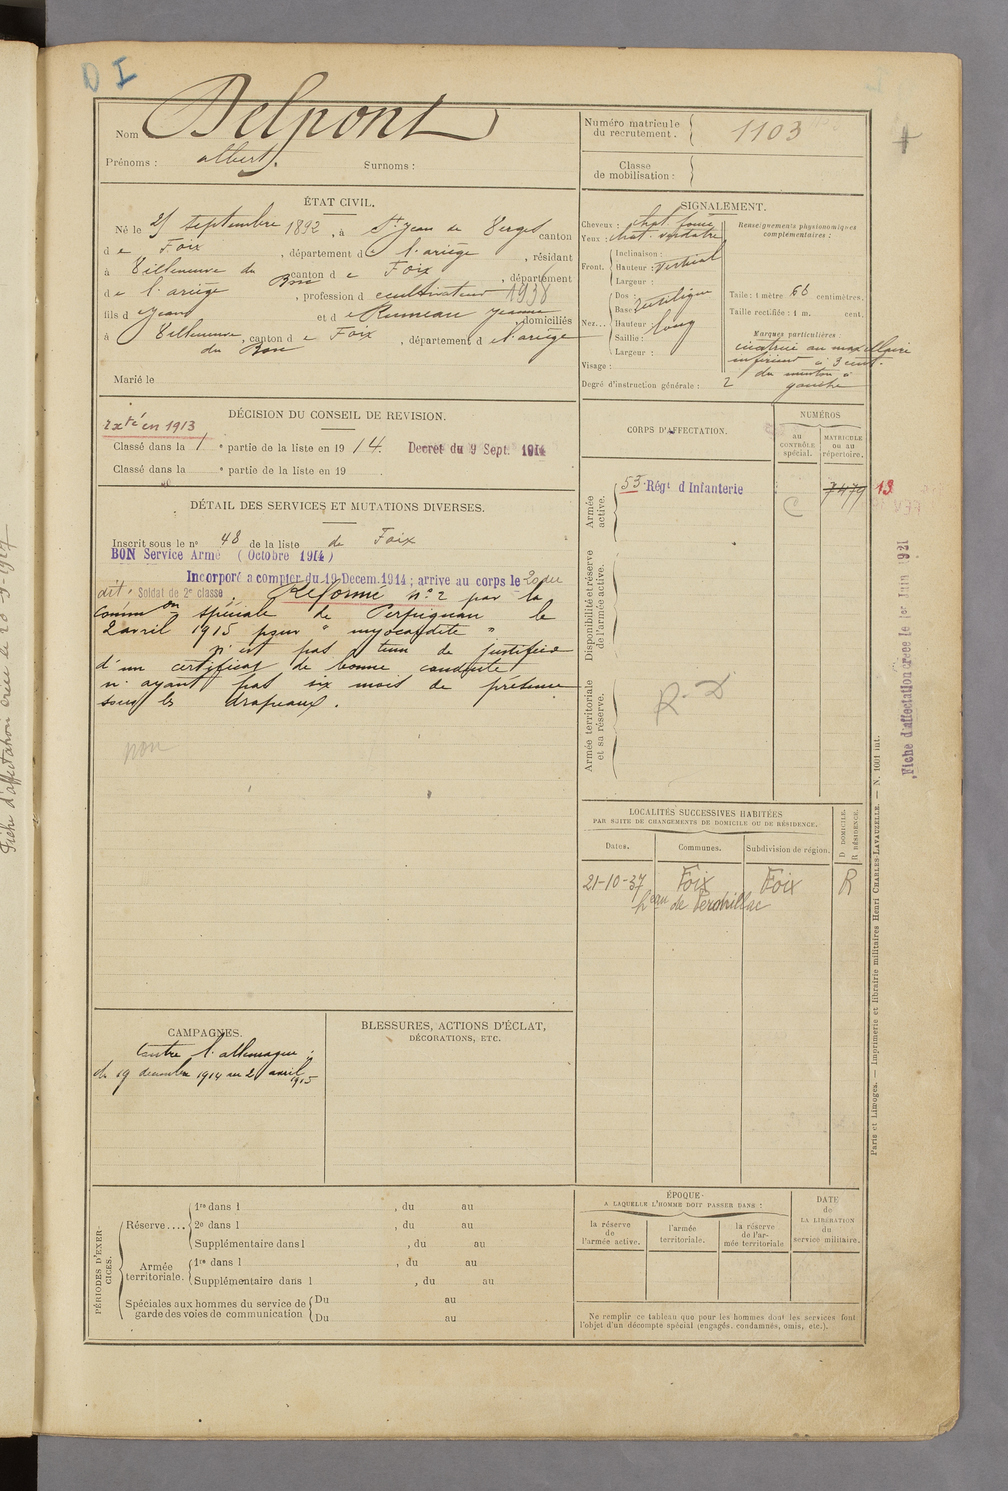 D I
Nom Delpont
Prénoms : albert. Surnoms :
Numéro matricule du recrutement. 1103
Classe de mobilisation :
ÉTAT CIVIL.
Né le 25 septembre 1892, à St Jean de Verges canton
d e Foix, département d e l'ariège, résidant
à Villeneuve du Bosc canton d e Foix, département
d e l'ariège, profession d e cultivateur 1938
fils d e Jean et d e Rumeau Jeanne, domiciliés
à Villeneuve du Bosc, canton d e Foix, département d e l'ariège
Marié le
SIGNALEMENT.
Cheveux : chat. foncé
Yeux : chat. verdatre
Front. Inclinaison :
Hauteur : vertical
Largeur :
Nez... Dos : rectiligne
Base
Hauteur : long
Saillie :
Largeur :
Visage :
Degré d'instruction générale : 2
Renseignements physionomiques complémentaires :
Taille : 1 mètre 66 centimètres.
Taille rectifiée : 1 m. cent.
Marques particulières
cicatrice au maxillaire
inférieur à 3 cent.
du menton à
gauche
DÉCISION DU CONSEIL DE REVISION.
exté en 1913
Classé dans la 1re partie de la liste en 1914. Decret du 9 Sept. 1914
Classé dans la e partie de la liste en 19
DÉTAIL DES SERVICES ET MUTATIONS DIVERSES.
Inscrit sous le no 48 de la liste de Foix
BON Service Armé ( Octobre 1914 )
Incorporé a compter du 19 Decem. 1914 ; arrive au corps le 20 du
dit. Soldat de 2e classe. Réformé n° 2 par la
Common spéciale de Perpignan le
2 avril 1915 pour " myocardite "
N'est pas tenu de justifier
d'un certificat de bonne conduite
n'ayant pas six mois de présence
sous les drapeaux.
non
CORPS D'AFFECTATION.
NUMÉROS
au CONTRÔLE spécial.
MATRICULE ou au répertoire.
Armée active.
53e Régt d Infanterie
7479 13
Disponibilité et réserve de l'armée active.
Armée territoriale et sa réserve.
R. D
Fiche d'affectation créée le 1er Juin 1921
Fiche d'affectation créée le 20-9-1927
LOCALITÉS SUCCESSIVES HABITÉES
PAR SUITE DE CHANGEMENTS DE DOMICILE OU DE RÉSIDENCE.
Dates. Communes. Subdivision de région. D DOMICILE. R RÉSIDENCE.
21-10-37 Foix Foix R
heau de Perchillac
CAMPAGNES.
Contre l'allemagne :
du 19 decembre 1914 au 2 avril 1915
BLESSURES, ACTIONS D'ÉCLAT,
DÉCORATIONS, ETC.
PÉRIODES D'EXERCICES.
Réserve.... 1re dans l , du au
2e dans l , du au
Supplémentaire dans l , du au
Armée territoriale. 1re dans l , du au
Supplémentaire dans l , du au
Spéciales aux hommes du service de garde des voies de communication Du au
Du au
ÉPOQUE
A LAQUELLE L'HOMME DOIT PASSER DANS :
la réserve de l'armée active.
l'armée territoriale.
la réserve de l'armée territoriale
DATE de LA LIBÉRATION du service militaire.
Ne remplir ce tableau que pour les hommes dont les services font
l'objet d'un décompte spécial (engagés, condamnés, omis, etc.).
Paris et Limoges. — Imprimerie et librairie militaires Henri CHARLES-LAVAUZELLE. — N. 1001 int.